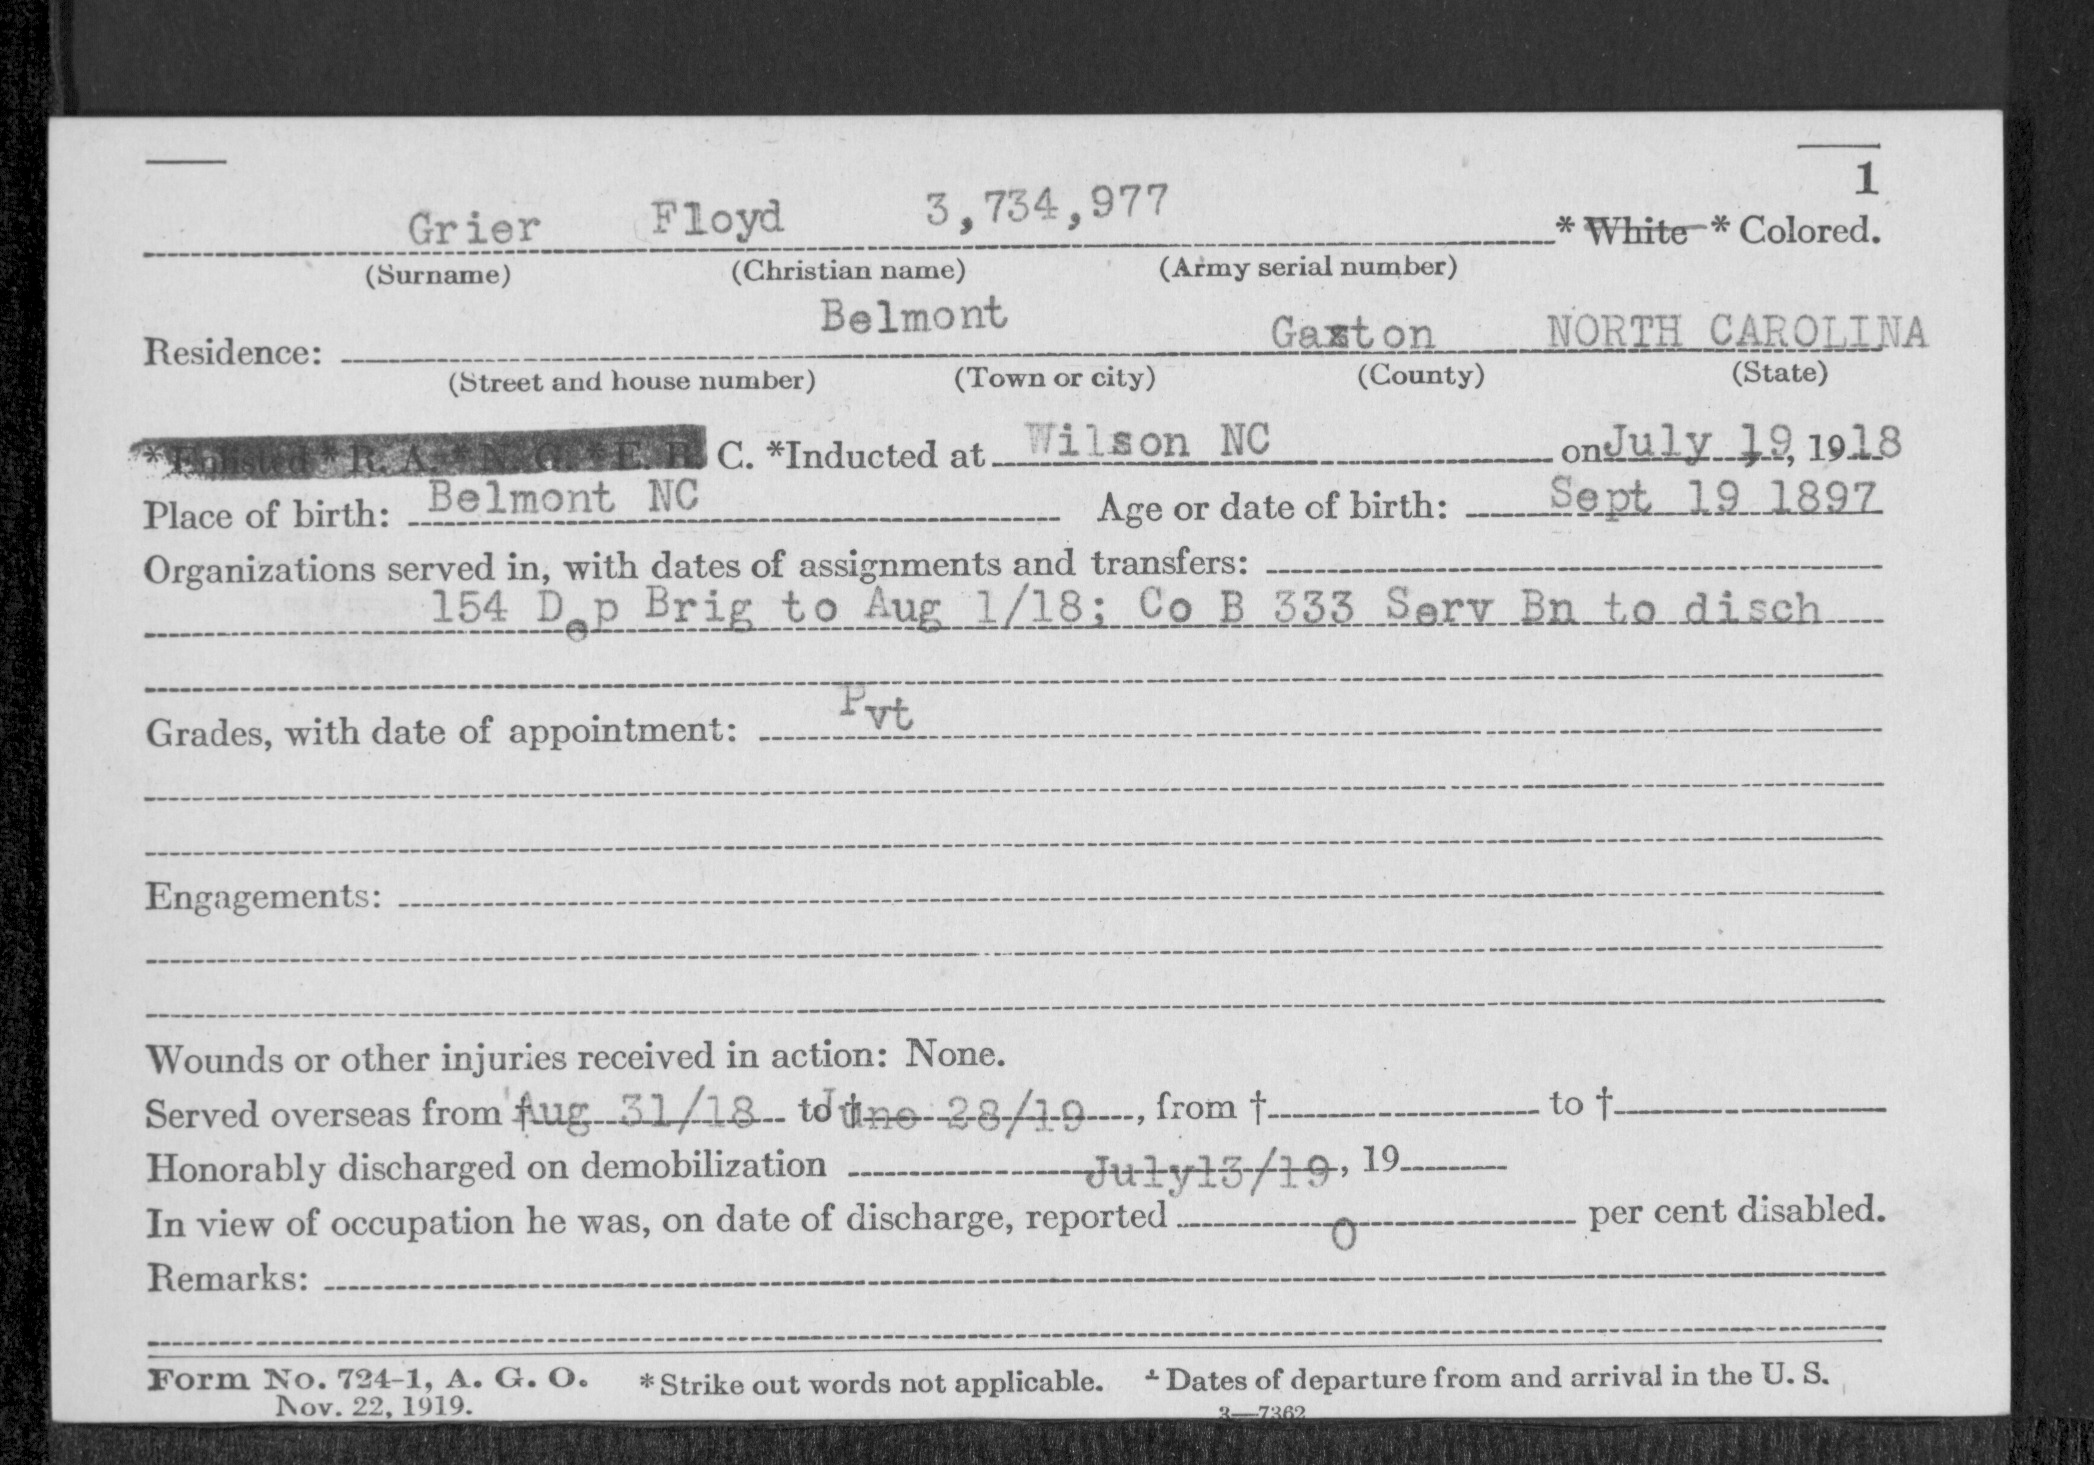 1
Grier Floyd 3,734,977 * White * Colored.
(Surname) (Christian name) (Army serial number)
Residence: Belmont Gaston NORTH CAROLINA
(Street and house number) (Town or city) (County) (State)
*Enlisted * R. A. * N. G. * E. R. C. *Inducted at Wilson NC on July 19, 1918
Place of birth: Belmont NC Age or date of birth: Sept 19 1897
Organizations served in, with dates of assignments and transfers:
154 Dep Brig to Aug 1/18; Co B 333 Serv Bn to disch
Grades, with date of appointment: Pvt
Engagements:
Wounds or other injuries received in action: None.
Served overseas from † Aug 31/18 to † June 28/19, from † to †
Honorably discharged on demobilization July13/19, 19
In view of occupation he was, on date of discharge, reported 0 per cent disabled.
Remarks:
Form No. 724-1, A. G. O. * Strike out words not applicable. † Dates of departure from and arrival in the U. S.
Nov. 22, 1919. 3—7362